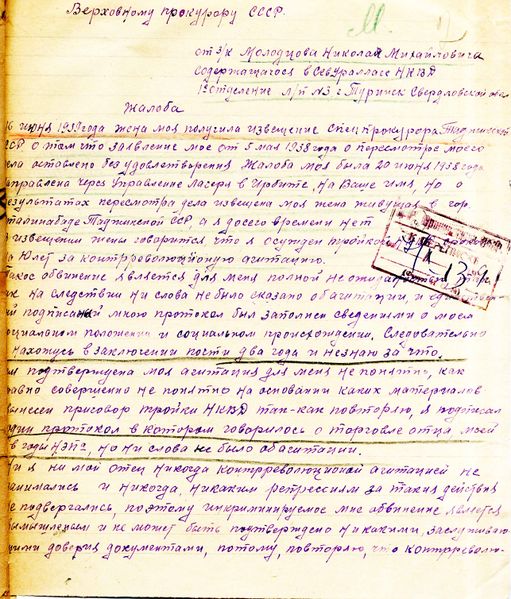 Верховному прокурору СССР.
от з/к Молодцова Николая Михайловича
содержащагося в Севураллаге НКВД
отделение л/п №3 г. Туринск Свердловской
Жалоба
июня 1939 года жена моя получила извещение Спец прокурора
ССР о том что заявление мое от 5 мая 1938 года о пересмотре моего
дела оставлено без удовлетворения. Жалоба моя была 20 июня 1938 года
направлена через Управление лагеря в Ирбите, на Ваше имя, но о
результатах пересмотра дела извещена моя жена живущая в гор.
Сталинабаде Таджикской ССР, а я досего времени нет
извещении жены говорится что я осужден тройкой
на 10 лет за контрреволюционую агитацию.
Такое обвинение является для меня полной неожиданностью
на следствии ни слова не было сказано об агитации, и
подписаный мною протокол был заполнен сведениями о моем
социальном положении и социальном происхождении. Следовательно
нахожусь в заключении почти два года и незнаю за что.
подтверждена моя агитация для меня не понятно, как
равно совершенно не понятно на основании каких материалов
вынесен приговор тройки НКВД так-как повторяю, я подписал
один протокол в котором говорилось о торговле отца моей
в годы НЭПа, но ни слова не было об агитации.
Ни я ни мой отец никогда контрреволюционой агитацией не
занимались и никогда, никаким репрессиям за такия действия
не подвергались, поэтому инкриминируемое мне обвинение является
вымышленым и не может быть подтверждено никакими, заслуживаю-
щими доверия документами, потому, повторяю, что контрреволю-